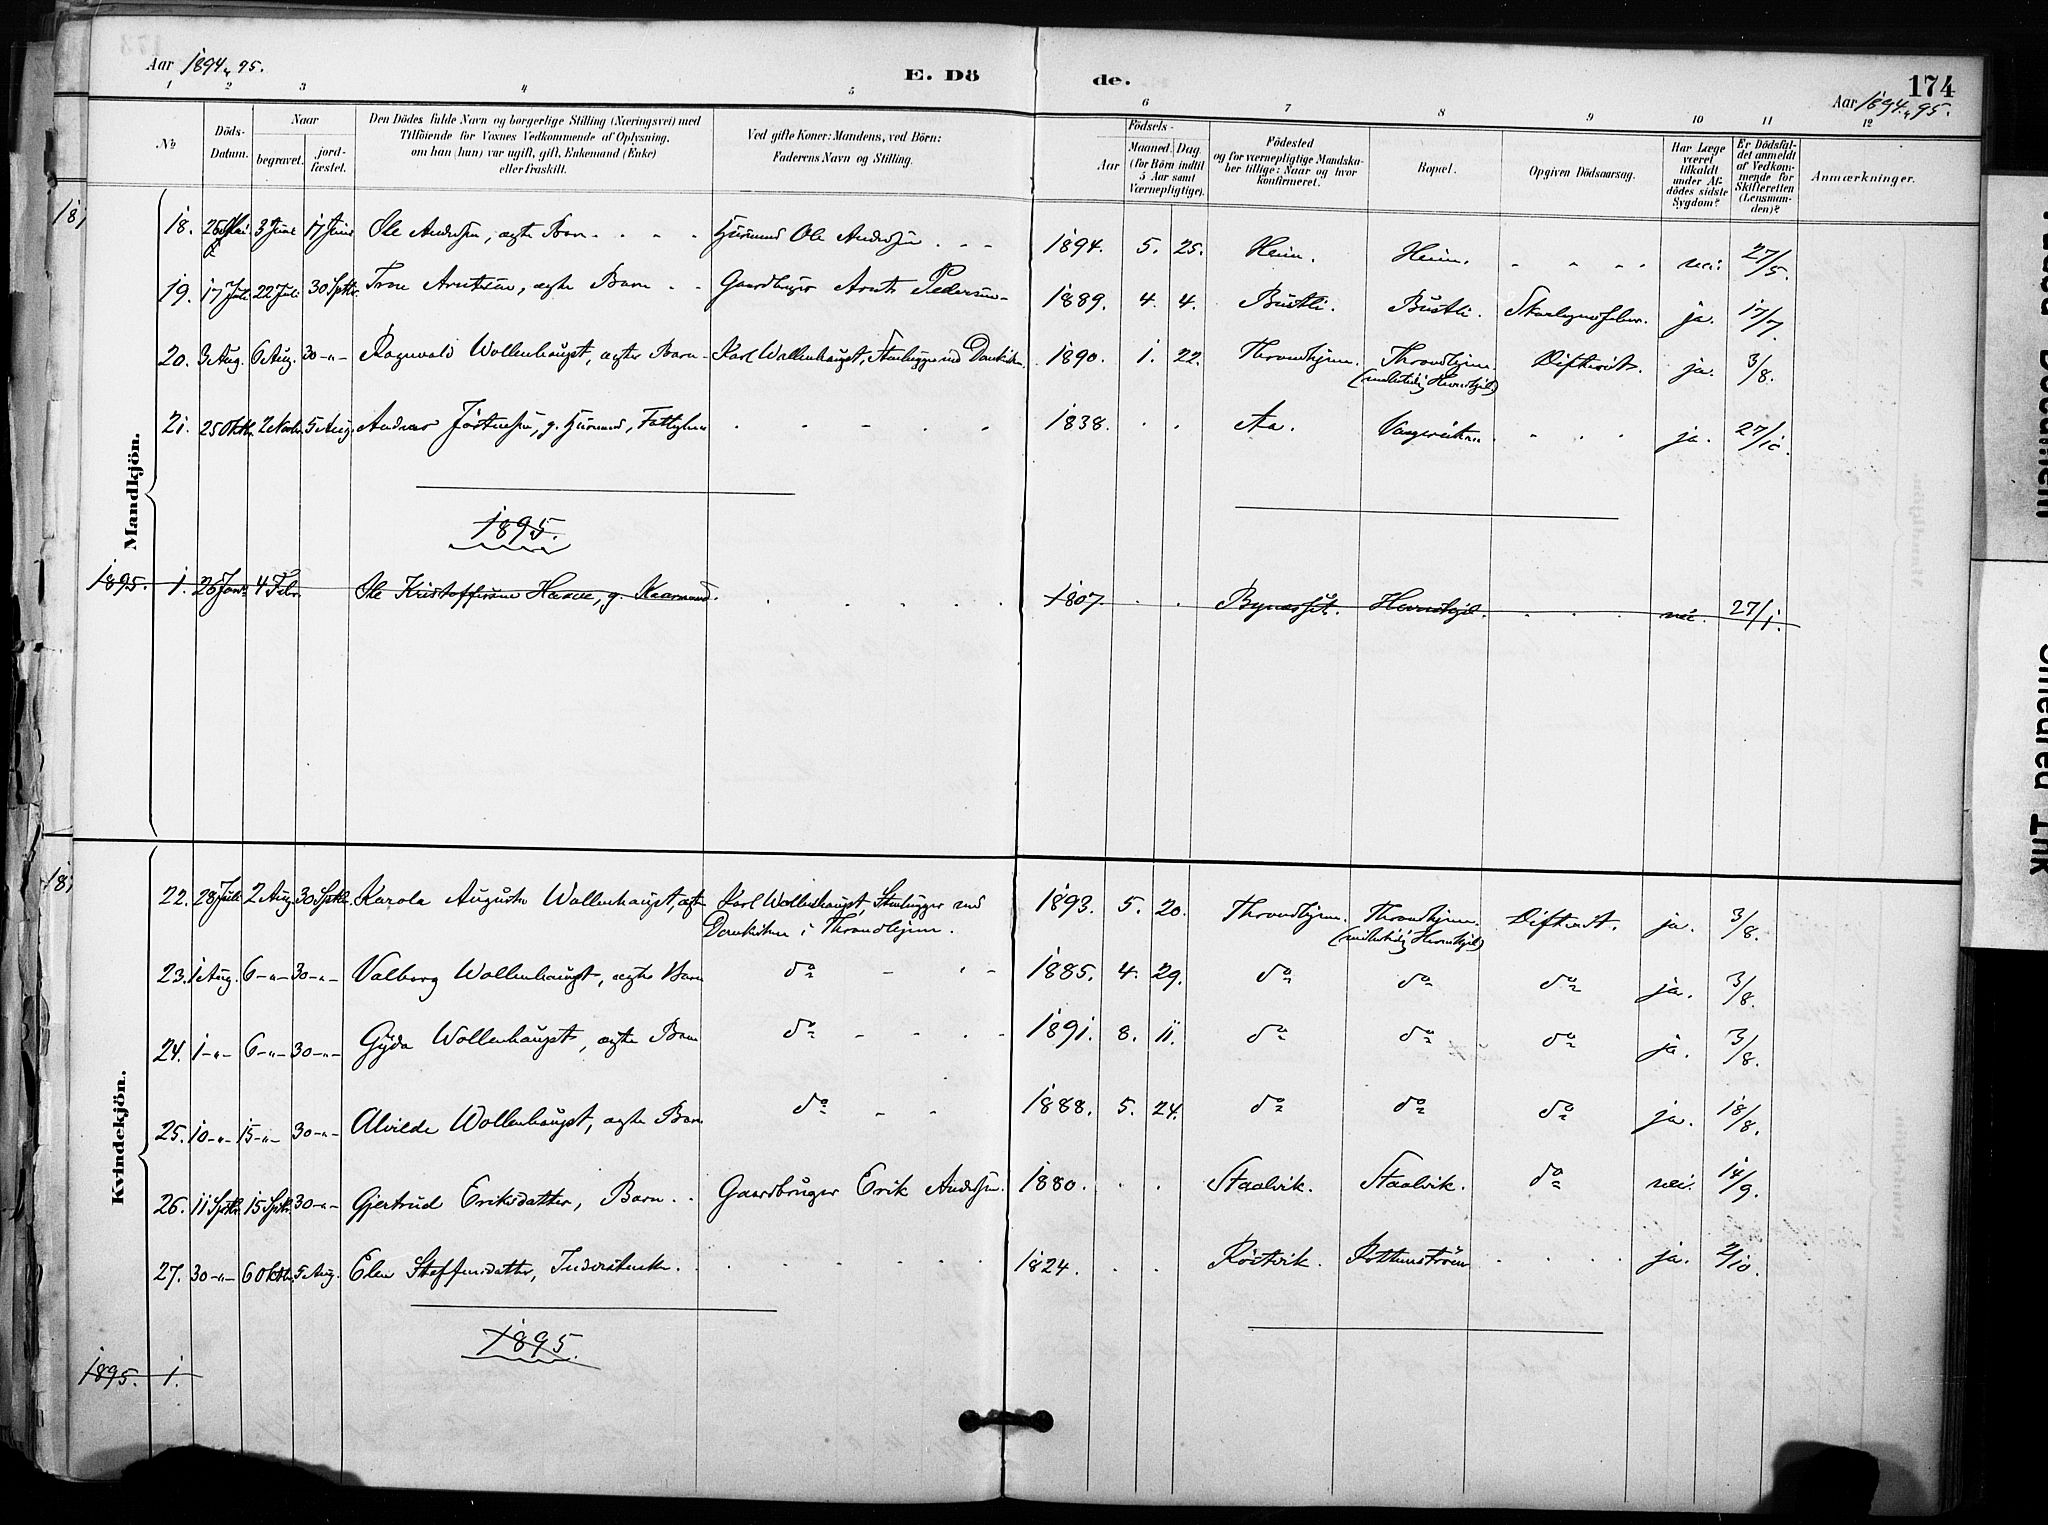 Aar 1894, 95.
E. Dö
de.
174
Aar 1894, 95.
1 2 3 4 5 6 7 8 9 10 11 12
No
Döds-Datum.
Naar
begravet.
jord-fæstet.
Den Dödes fulde Navn og borgerlige Stilling (Næringsvei) med
Tilföiende for Voxnes Vedkommende af Oplysning,
om han (hun) var ugift, gift, Enkemand (Enke)
eller fraskilt.
Ved gifte Koner: Mandens, ved Börn:
Faderens Navn og Stilling.
Födsels-
Aar
Maaned. Dag.
(for Börn indtil
5 Aar samt
Værnepligtige).
Födested
og for værnepligtige Mandska-
ber tillige: Naar og hvor
konfirmeret.
Bopæl.
Opgiven Dödsaarsag.
Har Læge
været
tilkaldt
under Af-
dödes sidste
Sygdom?
Er Dödsfal-
det anmeldt
af Vedkom-
mende for
Skifteretten
(Lensman-
den)?
Anmærkninger.
18
Mandkjön.
18. 26 Mai 3 Juni 17 Juni Ole Andersen, ægte Barn Husmand Ole Andersen 1894. 5. 25. Heim. Heim. nei. 27/5.
19. 17 Juli 22 Juli 30 Sptbr. Arntsen, ægte Barn Gaardbruger Arnt Pedersen 1889. 4. 4. Bustli. Bustli. ja. 17/7.
20. 3 Aug. 6 Aug. 30 -"- Ragnvald Wollenhaupt, ægte Barn Karl Wollenhaupt, Stenhugger ved Domkirken. 1890. 1. 22. Throndhjem. Throndhjem. Difterit. ja. 3/8.
(midlertidig Hevnskjel)
21. 25 Oktbr. 2 Novbr. 5 Aug. Andreas Jostensen, g. Husmand, Fattiglem 1838. Aa. ja. 27/10.
1895.
1895. 1. 26 Jan. 4 Febr. Ole Kristoffersen g. Kaarmand. 1807. Bynesset. Hevnskjel. nei. 27/1.
18
Kvindekjön.
22. 28 Juli 2 Aug. 30 Sptbr. Karola Augusta Wollenhaupt, ægte Karl Wollenhaupt, Stenhugger ved
Domkirken i Throndhjem. 1893. 5. 20. Throndhjem. Throndhjem. Difterit. ja. 3/8.
(midlertidig Hevnskjel)
23. 1 Aug. 6 -"- 30 -"- Valborg Wollenhaupt, ægte Barn do 1885. 4. 29. do do do ja. 3/8.
24. 1 -"- 6 -"- 30 -"- Gyda Wollenhaupt, ægte Barn do 1891. 8. 11. do do do ja. 3/8.
25. 10 -"- 15 -"- 30 -"- Alvilde Wollenhaupt, ægte Barn do 1888. 5. 24. do do do ja. 18/8.
26. 11 Sptbr. 15 Sptbr. 30 -"- Gjertrud Eriksdatter, Barn Gaardbruger Erik Andersen. 1880. Staalvik. Staalvik. do nei. 14/9.
27. 30 -"- 6 Oktbr. 5 Aug. Elen Steffensdatter, Inderstenke 1824. Röstvik. ja. 2/10.
1895.
1895. 1.
Smeared Ink